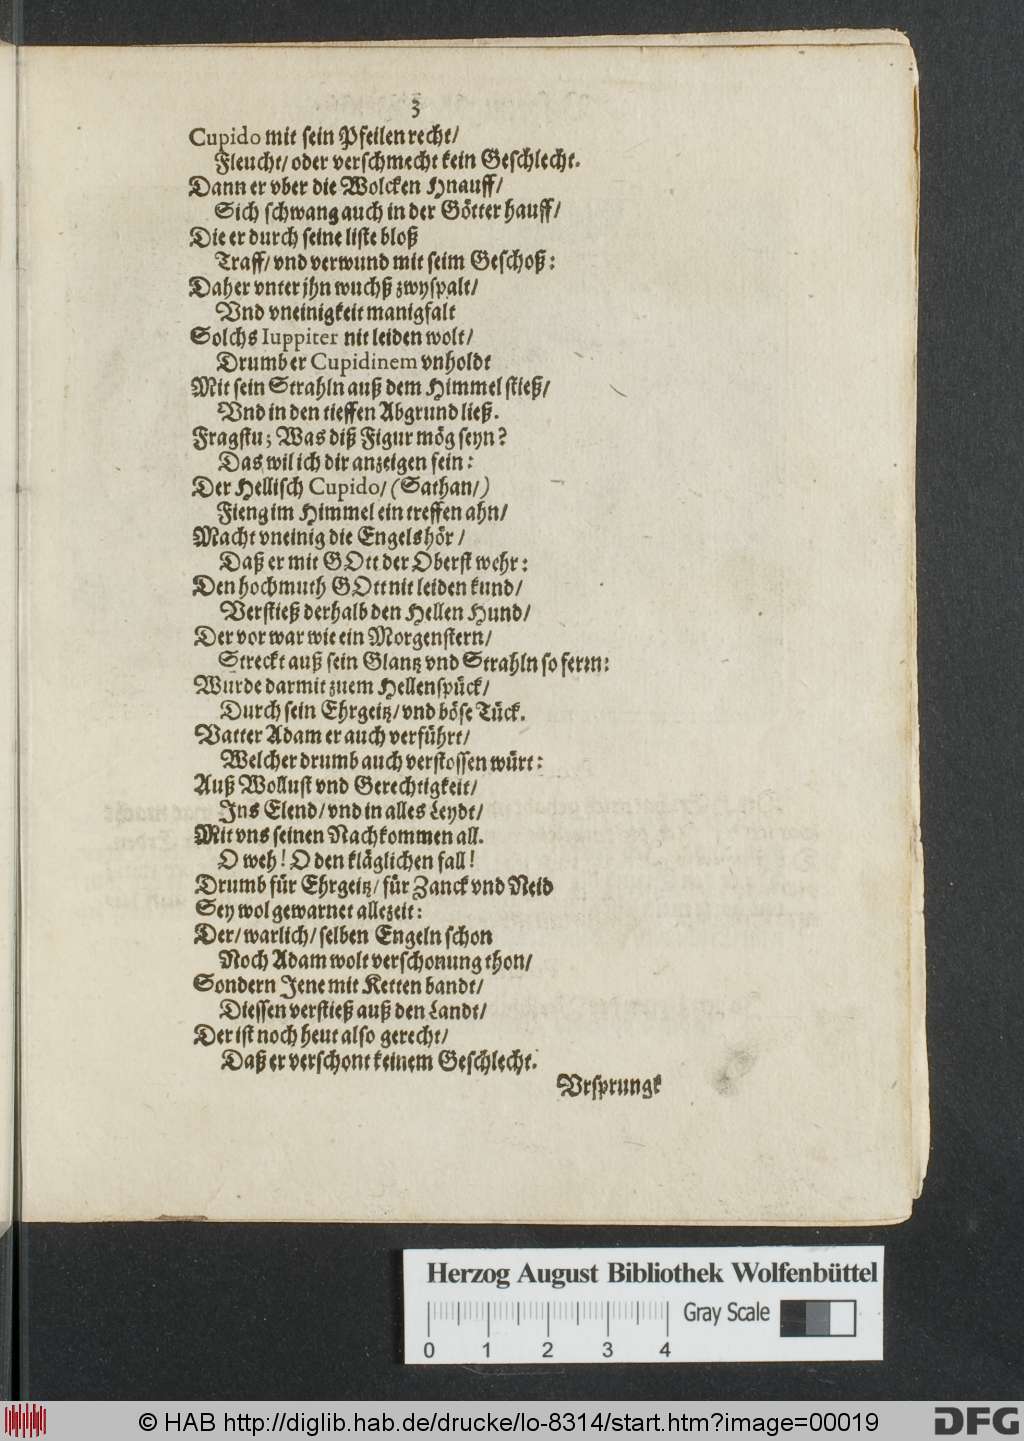 3
Cupido mit sein Pfeilen recht/
Fleucht/ oder verschmecht kein Geschlecht.
Dann er vber die Wolcken Hnauff/
Sich schwang auch in der Götter hauff/
Die er durch seine liste bloß
Traff/ vnd verwund mit seim Geschoß:
Daher vnter jhn wuchß zwyspalt/
Vnd vneinigkeit manigfalt
Solchs Iuppiter nit leiden wolt/
Drumb er Cupidinem vnholdt
Mit sein Strahln auß dem Himmel stieß/
Vnd in den tieffen Abgrund ließ.
Fragstu; Was diß Figur mög seyn?
Das wil ich dir anzeigen fein:
Der Hellisch Cupido/ (Sathan/)
Fieng im Himmel ein treffen ahn/
Macht vneinig die Engels hör/
Daß er mit GOtt der Oberst wehr:
Den hochmuth GOtt nit leiden kund/
Verstieß derhalb den Hellen Hund/
Der vor war wie ein Morgenstern/
Streckt auß sein Glantz vnd Strahln so ferrn:
Wurde darmit zuem Hellenspück/
Durch sein Ehrgeitz/ vnd böse Tück.
Vatter Adam er auch verführt/
Welcher drumb auch verstossen würt:
Auß Wollust vnd Gerechtigkeit/
Ins Elend/ vnd in alles Leydt/
Mit vns seinen Nachkommen all.
O weh! O den kläglichen fall!
Drumb für Ehrgeitz/ für Zanck vnd Neid
Sey wol gewarnet allezeit:
Der/ warlich/ selben Engeln schon
Noch Adam wolt verschonung thon/
Sondern Jene mit Ketten bandt/
Diessen verstieß auß den Landt/
Der ist noch heut also gerecht/
Daß er verschont keinem Geschlecht.
Vrsprungk
Herzog August Bibliothek Wolfenbüttel
Gray Scale
0 1 2 3 4
© HAB http://diglib.hab.de/drucke/lo-8314/start.htm?image=00019
DFG